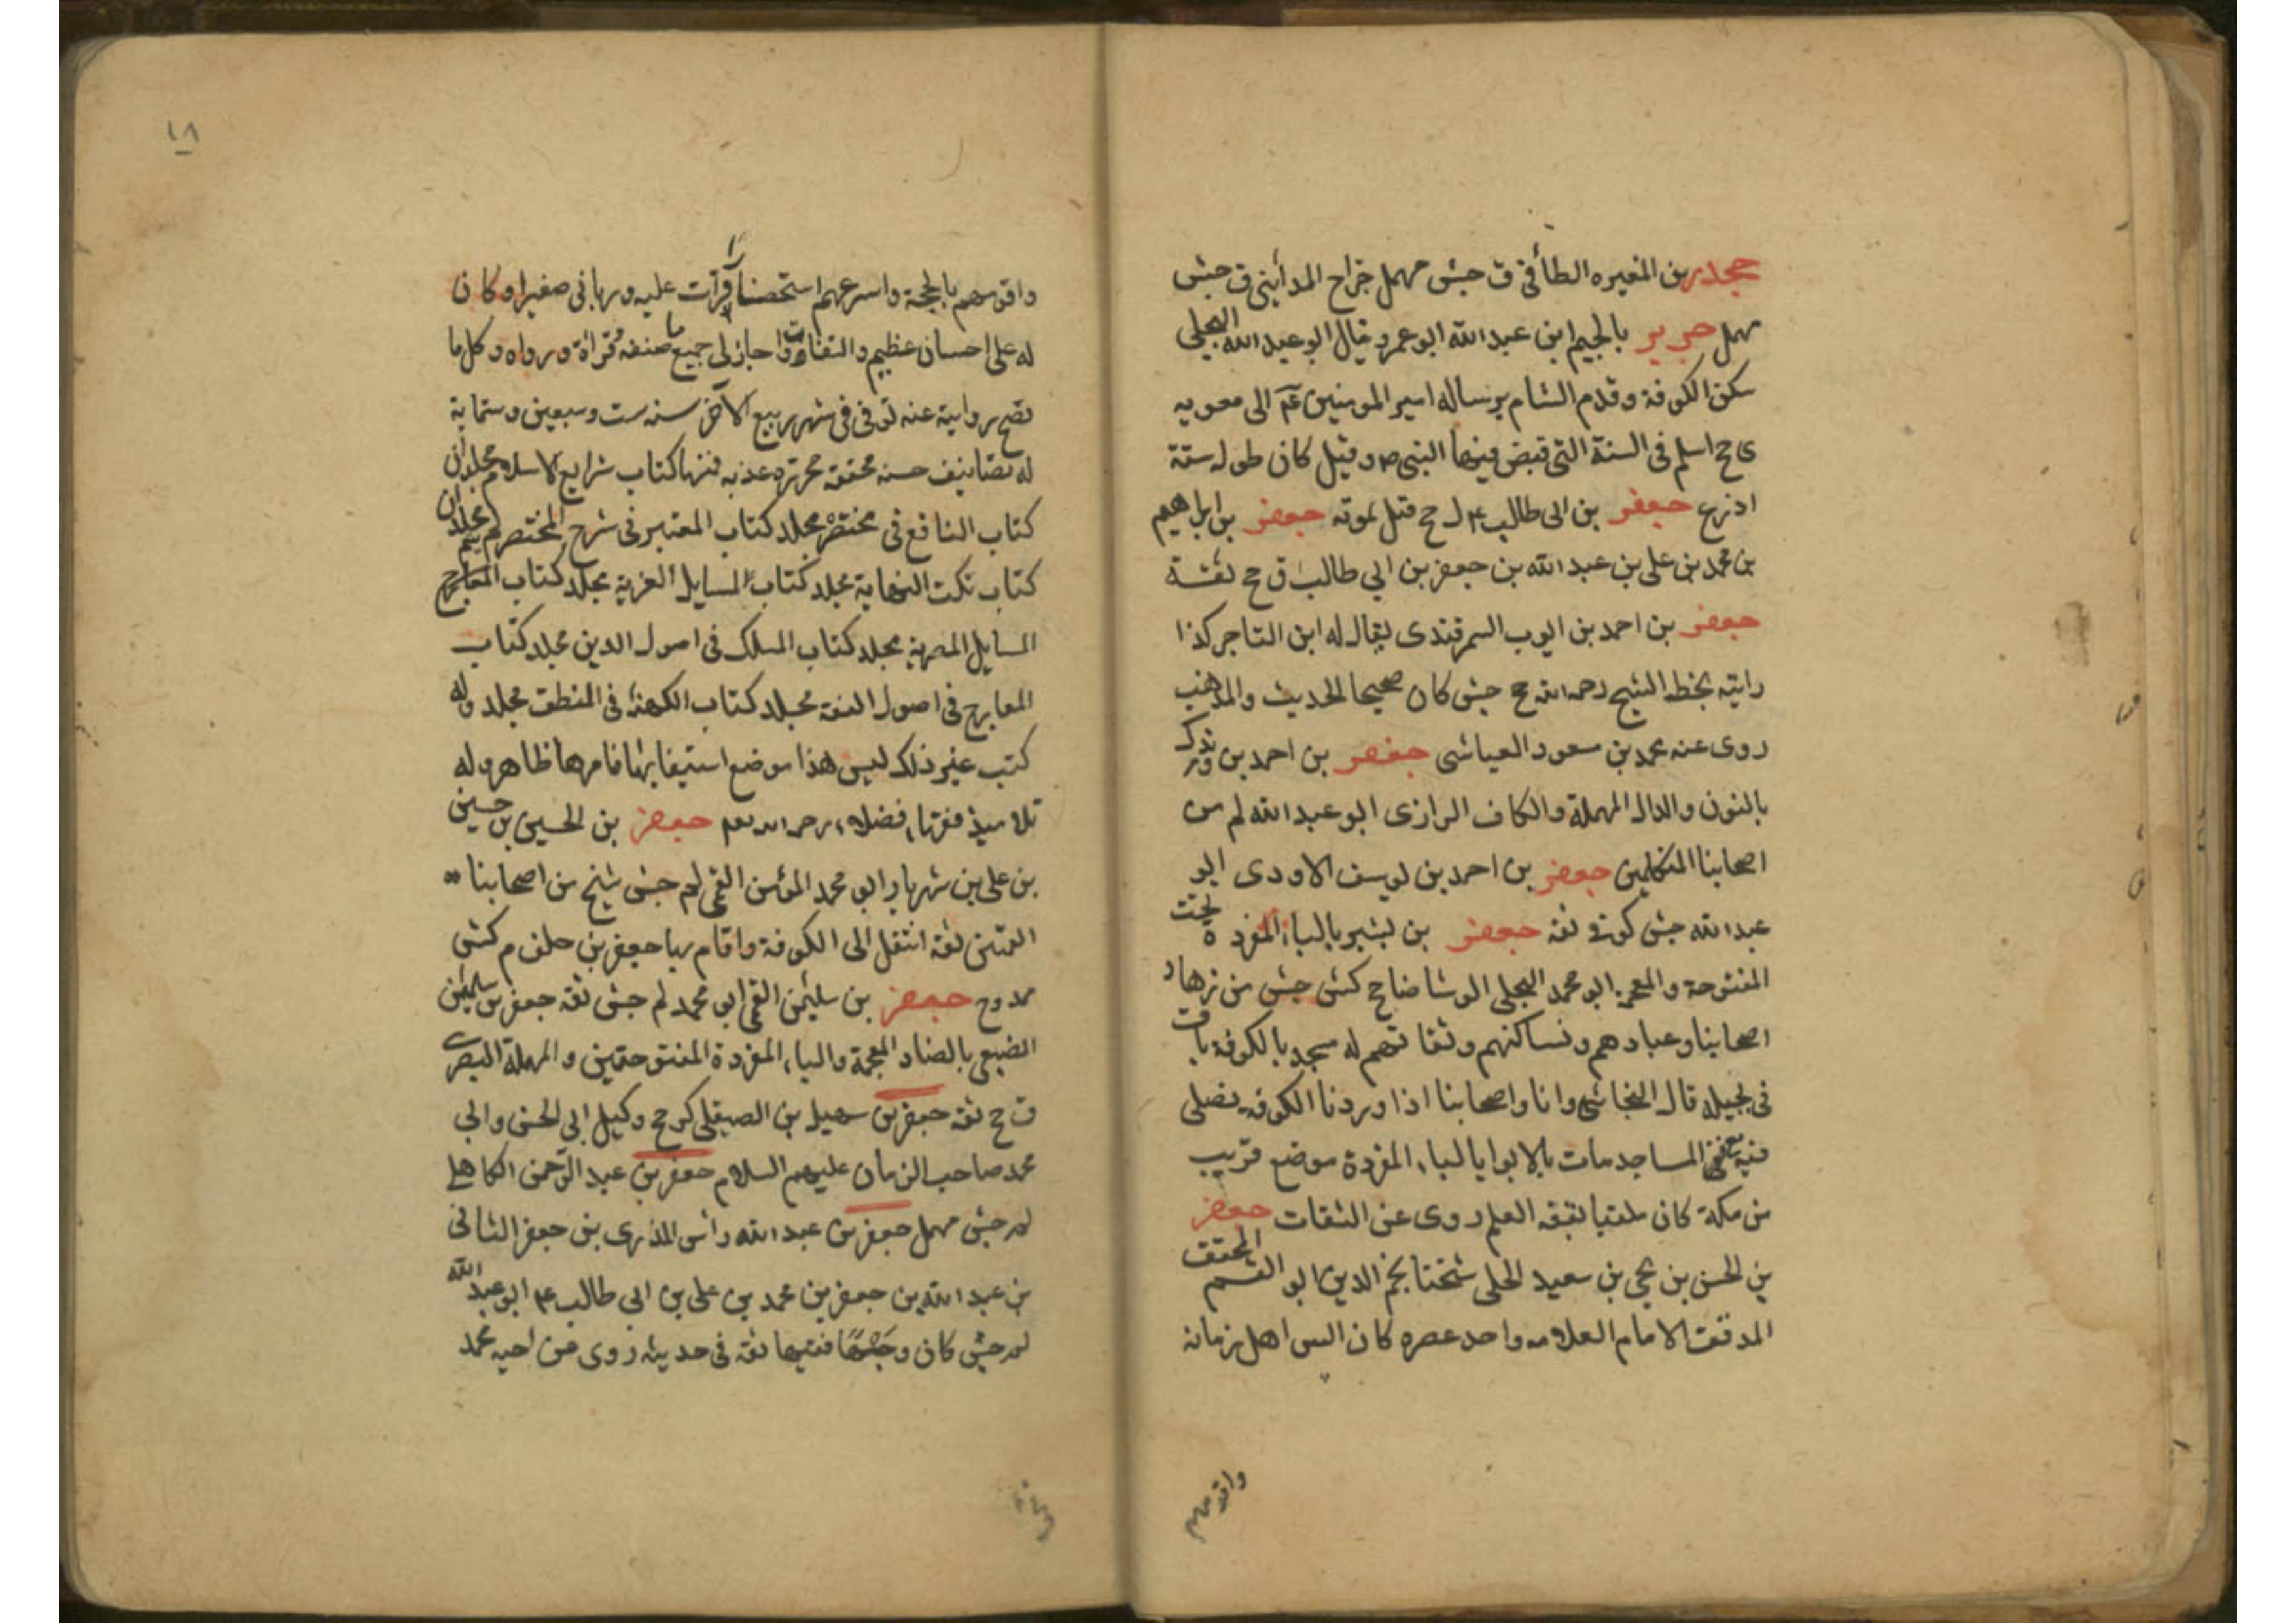 جحدر بن المغيره الطائى ق جش مهمل جراح المداينى ق جش
مهمل جرير بالجيم ابن عبد الله ابو عمرو يقال ابو عبد الله البجلى
سكن الكوفة وقدم الشام برساله امير المومنين عم الى معويه
ى جخ اسلم فى السنة التى قبض فيها النبى ص وقيل كان طوله ستة
اذرع جعفر بن ابى طالب ع ل جخ قتل بموته جعفر بن ابراهيم
بن محمد بن على بن عبد الله بن جعفر بن ابي طالب ق جخ ثقة
جعفر بن احمد بن ايوب السمرقندى يقال له ابن التاجر كذا
رايته بخط الشيخ رحمه الله جخ جش كان صحيح الحديث والمذهب
روى عنه محمد بن مسعود العياشى جعفر بن احمد بن وندك
بالنون والدال المهملة والكاف الرازى ابو عبد الله لم من
اصحابنا المتكلمين جعفر بن احمد بن يوسف الاودى ابو
عبد الله جش كوفى ثقة جعفر بن بشير بالباء المفردة تحت
المفتوحة والمعجمة ابو محمد البجلى الوشا ضا جخ كش جش من زهاد
اصحابنا وعبادهم ونساكهم وثقاتهم له مسجد بالكوفة باق
فى بجيلة قال النجاشى وانا واصحابنا اذا وردنا الكوفه نصلى
فيه مع المساجد مات بالابوا بالباء المفردة موضع قريب
من مكة كان ملقبا بقفه العلم روى عن الثقات جعفر
بن الحسن بن يحيى بن سعيد الحلى شيخنا نجم الدين ابو القسم المحقق
المدقق الامام العلامه واحد عصره كان السن اهل زمانه
واقومهم
١٨
واقومهم بالحجة واسرعهم استحضارا قرات عليه وربانى صغيرا وكان
له على احسان عظيم والتفات واجاز لى جميع ما صنفه وقراه ورواه وكل ما
تصح روايته عنه توفى فى شهر ربيع الآخر سنه ست وسبعين وستماية
له تصانيف حسنه محققه محررة عذبه فمنها كتاب شرايع الاسلام مجلدان
كتاب النافع فى مختصره مجلد كتاب المعتبر فى شرح المختصر لم يتم مجلدان
كتاب نكت النهاية مجلد كتاب المسايل الغريه مجلد كتاب المعارج
المسايل المصريه مجلد كتاب المسلك فى اصول الدين مجلد كتاب
المعارج فى اصول الفقه مجلد كتاب الكهنة فى المنطق مجلد وله
كتب غير ذلك ليس هذا موضع استيفايها فامرها ظاهر وله
تلاميذ فقهاء فضلاء رحمه الله تعم جعفر بن الحسين بن حسين
بن على بن شهريار ابو محمد المؤمن القمى لم جش شيخ من اصحابنا
القميين ثقه انتقل الى الكوفة واقام بها جعفر بن خلف م كش
ممدوح جعفر بن سليمن القمى ابو محمد لم جش ثقه جعفر بن سليمن
الضبعى بالضاد المعجمة والباء المفردة المفتوحتين والمهملة البصرى
ق جخ ثقه جعفر بن سهيل بن الصيقلى كر جخ وكيل ابى الحسن وابى
محمد صاحب الزمان عليهم السلام جعفر بن عبد الرحمن الكاهلى
لم جش مهمل جعفر بن عبد الله راس المذرى بن جعفر الثانى
بن عبد الله بن جعفر بن محمد بن على بن ابى طالب ع ابو عبد الله
لم جش كان وجها فقيها ثقة فى حديثه روى عن اخيه محمد